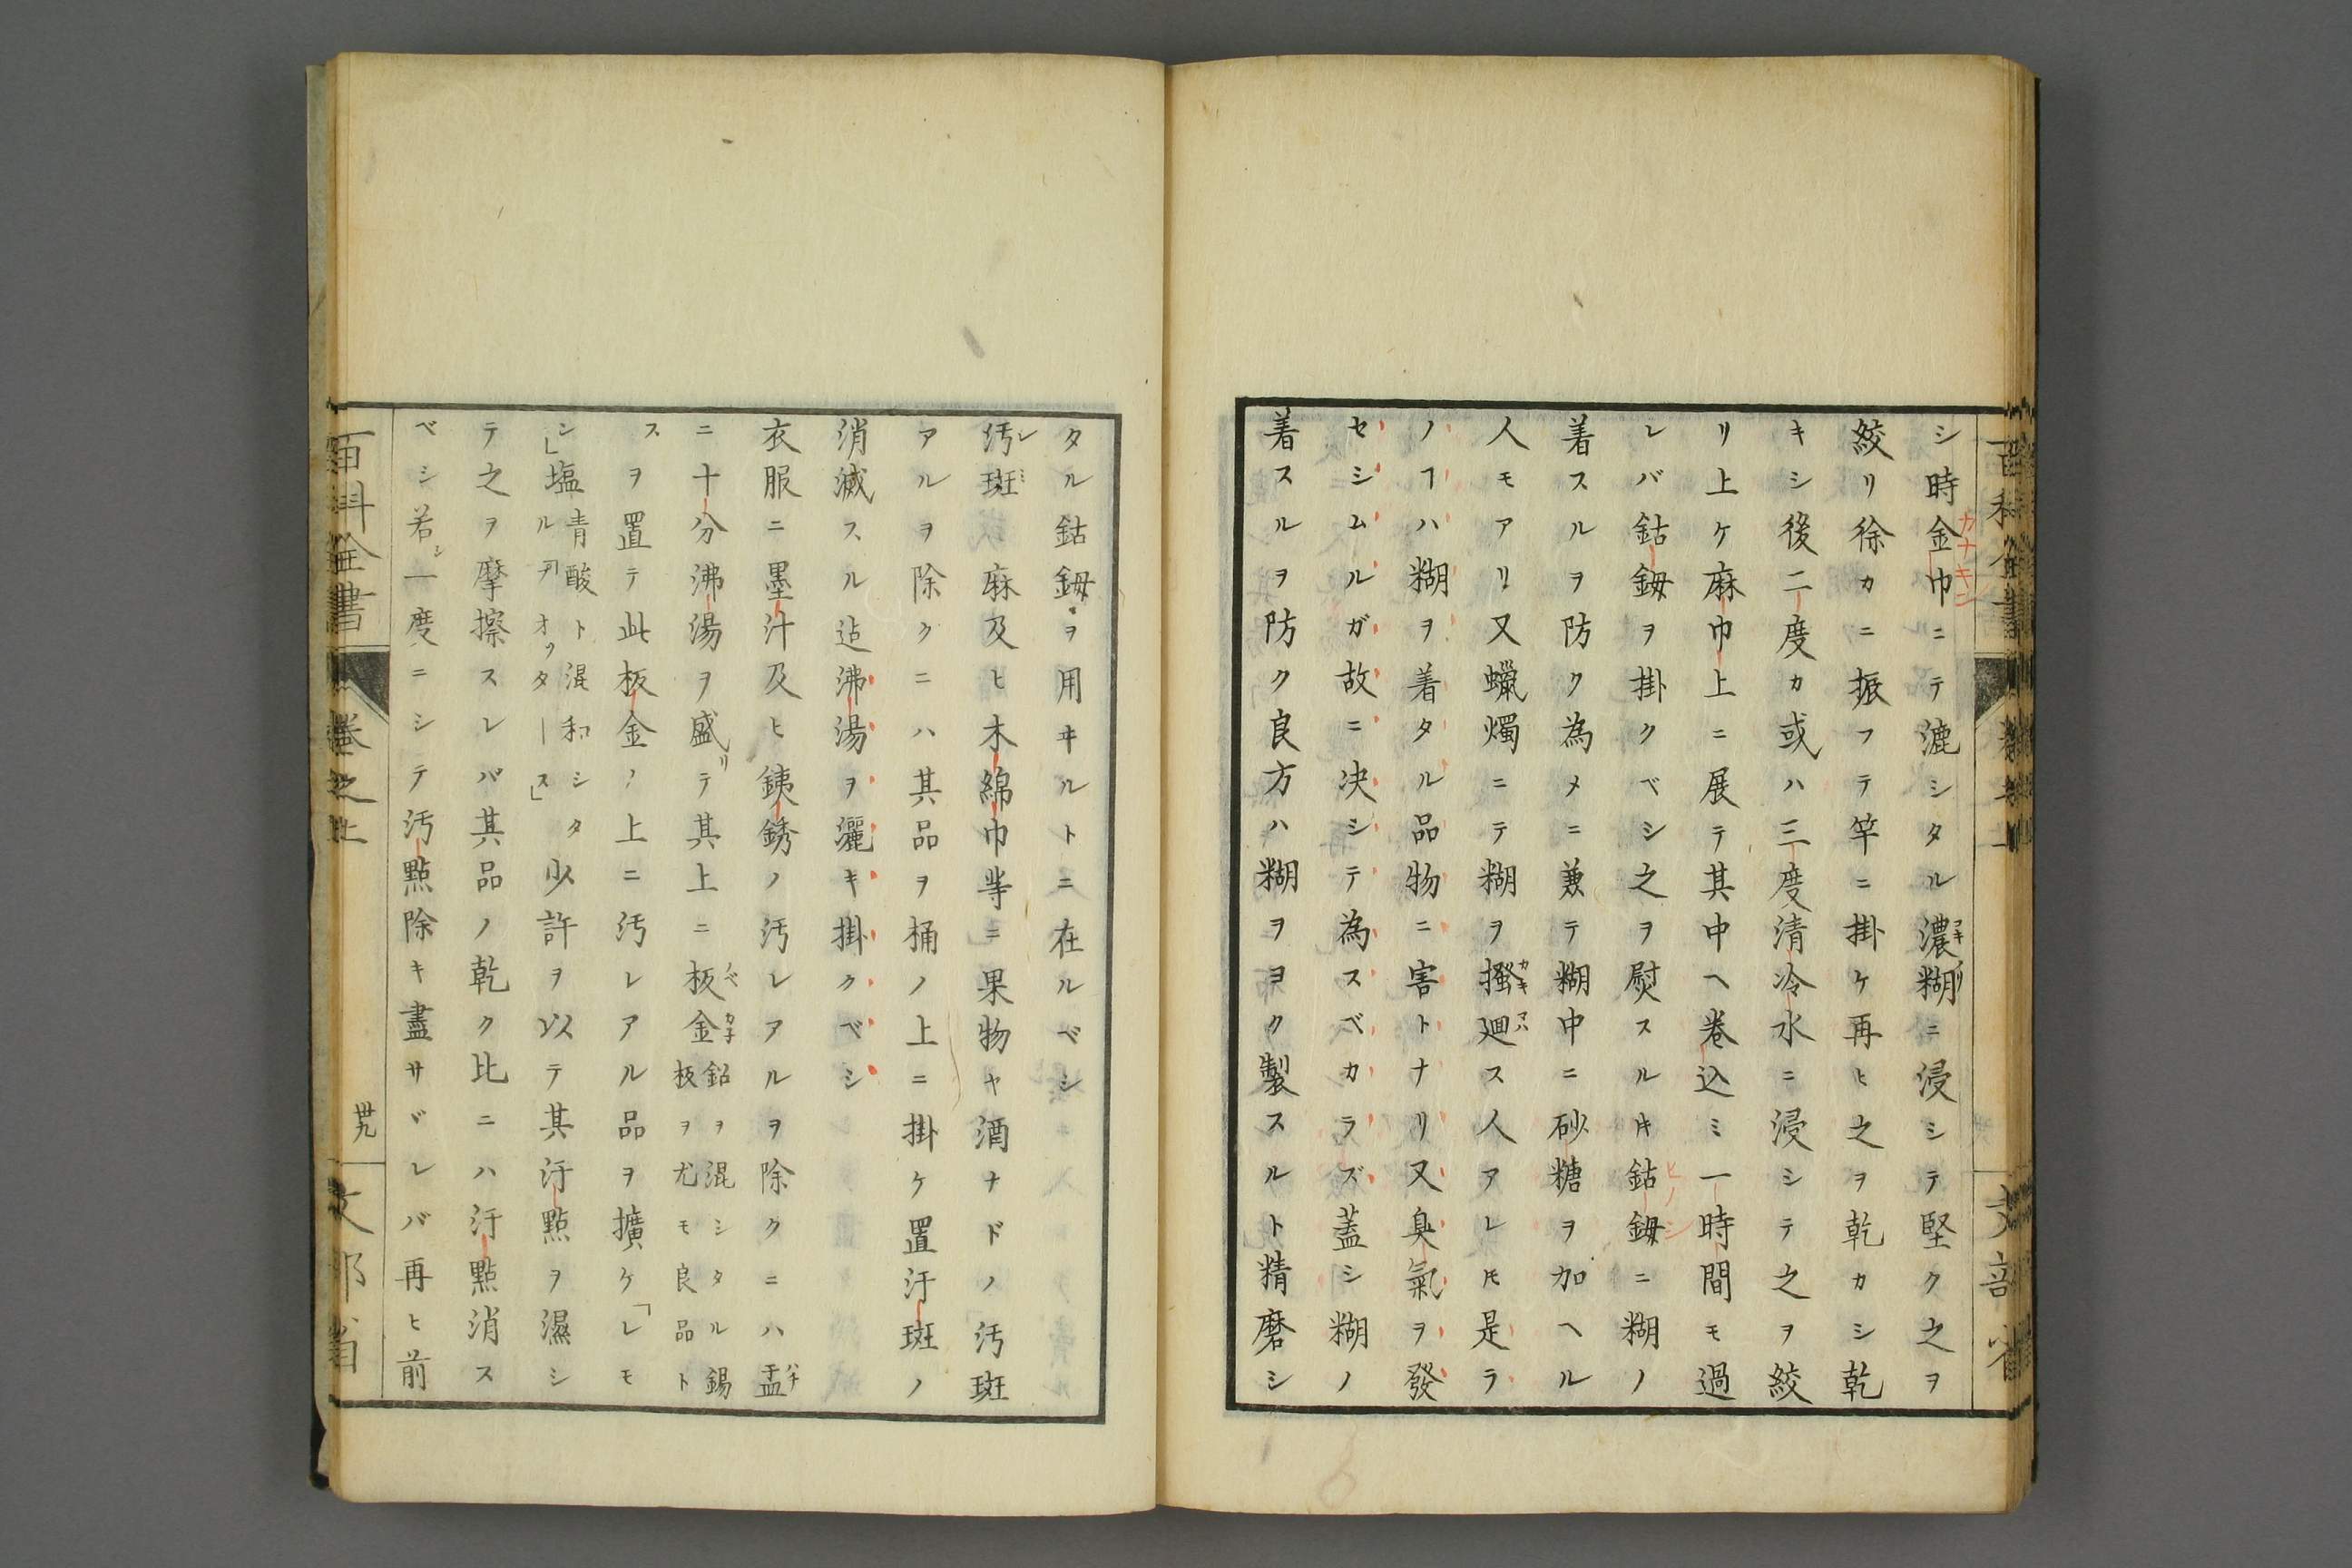 シ時金巾ニテ漉シタル濃糊ニ浸シテ堅ク之ヲ
絞リ徐カニ振フテ竿ニ掛ケ再ヒ之ヲ乾カシ乾
キシ後二度カ或ハ三度清冷水ニ浸シテ之ヲ絞
リ上ケ麻巾上ニ展テ其中ヘ卷込ミ一時間モ過
レバ鈷鉧ヲ掛クベシ之ヲ熨スルキ鈷鉧ニ糊ノ
着スルヲ防ク為メニ兼テ糊中ニ砂糖ヲ加ヘル
人モアリ又蠟燭ニテ糊ヲ搔廻ス人アレ𪜈是ラ
ノヿハ糊ヲ着タル品物ニ害トナリ又臭氣ヲ發
セシムルガ故ニ决シテ為スベカラズ蓋シ糊ノ
着スルヲ防ク良方ハ糊ヲヨク製スルト精磨シ
タル鈷鉧ヲ用ヰルトニ在ルベシ
汚斑麻及ヒ木綿巾等ニ果物ヤ酒ナドノ汚斑
アルヲ除クニハ其品ヲ桶ノ上ニ掛ケ置汙斑ノ
消滅スル迠沸湯ヲ灑キ掛クベシ
衣服ニ墨汁及ヒ銕銹ノ汚レアルヲ除クニハ盂
ニ十分沸湯ヲ盛テ其上ニ板金鉛ヲ混シタル錫板ヲ尤モ良品ト
スヲ置テ此板金ノ上ニ汚レアル品ヲ擴ケ「レモ
シ」塩青酸ト混和シタルヲオフタース」少許ヲ以テ其汙點ヲ濕シ
テ之ヲ摩擦スレバ其品ノ乾ク比ニハ汙點消ス
ベシ若一度ニシテ汚點除キ盡サヾレバ再ヒ前
百科全書 卷之上 卅九 文部省